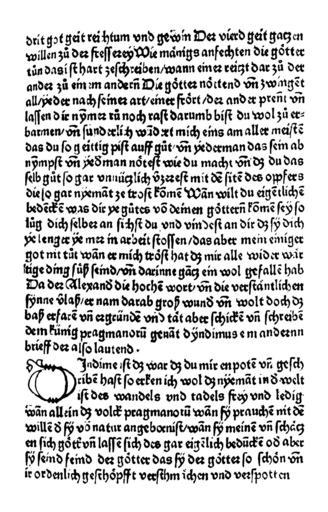 drit got geit reichtum vnd gewin Der vierd geit gantzen
willen zů der fresserey Wie mänigs anfechten die götter
tůn das ist hart zeschreiben/wann einer reitzt dar zů der
ander zů einem andern Die götter nöttend vñ zwinget
all/yeder nach seiner art/einer stört/der ander prent vñ
lassen dir nymer rů noch rast darumb bist du wol zů er⸗
barmen/vñ sunderlich wãdet mich eins am aller meisten
das du so geittig pist auff gůt/vñ yederman das sein ab
nympst vñ yedman nötest wie du macht vñ dz du das
selb gůt so gar vnnützlich verzerest mit dē siten des opfers
die so gar nyemāt ze trost kömē Wañ wilt du eigētlichē
bedēckē was dir ye gůtes võ deinen göttern kömē sey so
lůg dich selber an sichst du vnd vindest an dir dz sy dich
ye lenger ye mer in arbeit stossen/das aber mein einiger
got mit tůt wañ er mich tröst hat dz mir alle widerwär
tige ding süß seind/vñ darinne gãtz ein wol gefallē hab
Da der Alexand die hochē wort/vñ die verstäntlichen
synne verlaß/er nam darab groß wund vñ wolt doch dz
baß erfarē vñ ergründē vnd tät aber schickē vñ schreibē
dem künig pragmanorū genāt dyndimus em andernn
brieff der also lautend.
DIndime ist dz war dz du mir enpotē vñ gesch
ribē hast so ercken ich wol dz nyemāt in d welt
ist des wandels vnd tadels frey vnd ledig
wãn allein dz volck pragmanorū wãn sy prauchen mit dē
willē d sy võ natur angebor nist/wãn sy meinē vñ schätz
en sich götē vñ lassē sich des gar eigēlich bedückē od aber
sy seind feind der götter das sy der götter so schön vñ
ir ordenlich geschöpfft verschmächen vnd verspotten